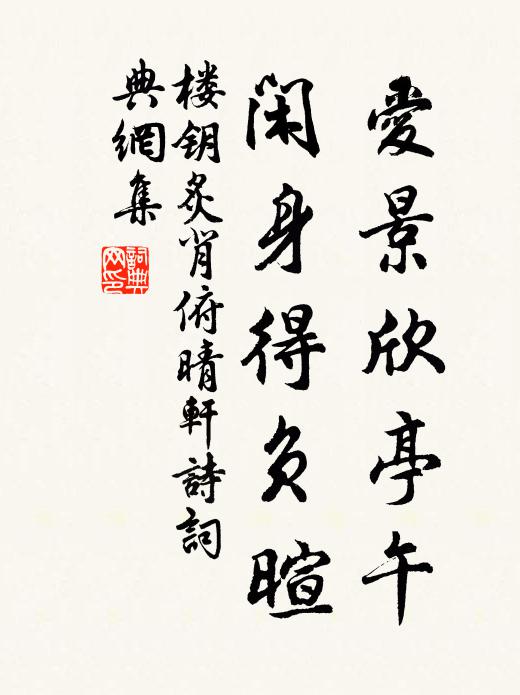 愛景欣亭午
閑身得負暄
楼鑰炙背俯晴軒詩詞
典網集
詞典網印